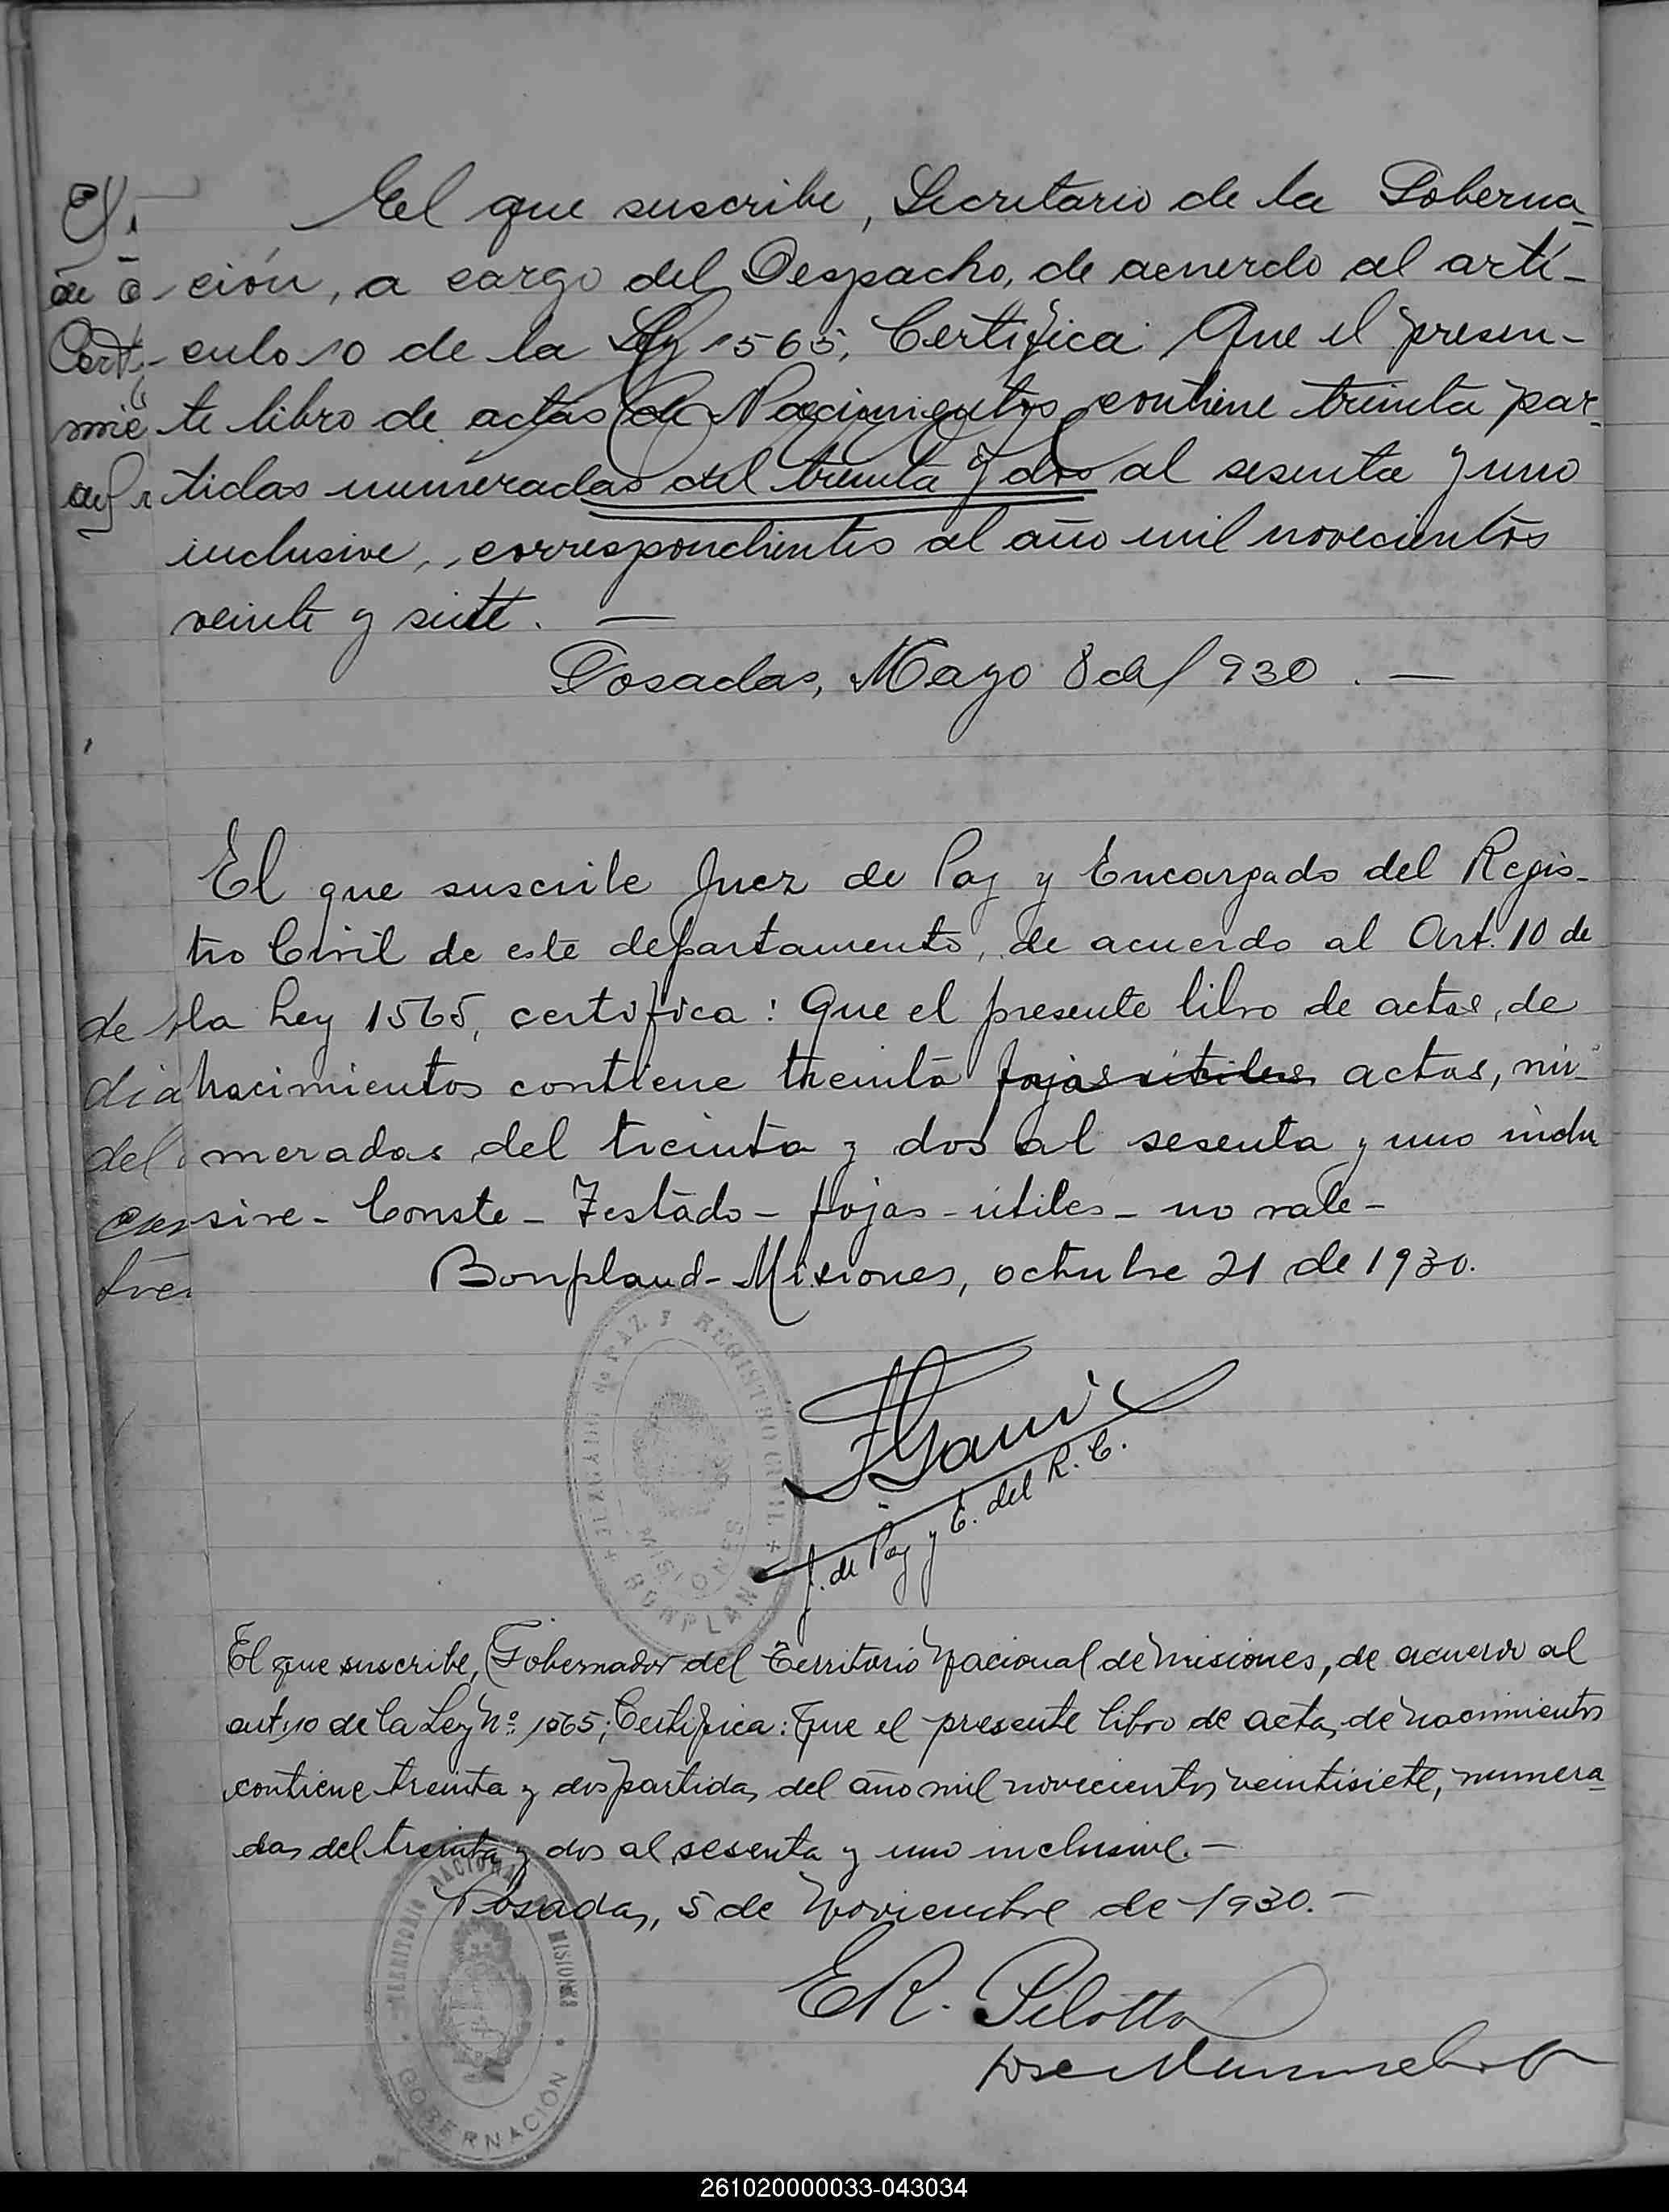 El que suscribe, Secretario de la Goberna-
ción, a cargo del Despacho, de acuerdo al artí-
culo 10 de la Ley 1565, Certifica: Que el presen-
te libro de actas de Nacimientos contiene treinta par-
tidas numeradas del treinta y dos al sesenta y uno
inclusive, correspondientes al año mil novecientos
veinte y siete. —
Posadas, Mayo 8 de 1930. —
El que suscribe Juez de Paz y Encargado del Regis-
tro Civil de este departamento, de acuerdo al Art. 10 de
la Ley 1565, certifica: Que el presente libro de actas, de
Nacimientos contiene treinta fojas utiles actas, nu-
meradas del treinta y dos al sesenta y uno inclu
sive - Conste - Testado - fojas - utiles - no vale -
Bonpland - Misiones, octubre 21 de 1930.
JUZGADO DE PAZ Y REGISTRO CIVIL
MISIONES
BONPLAND
J. de Paz y E. del R. C.
El que suscribe, Gobernador del Territorio Nacional de Misiones, de acuerdo al
art. 10 de la Ley Nº 1565; Certifica: Que el presente libro de actas de nacimientos
contiene treinta y dos partidas del año mil novecientos veintisiete, numera-
das del treinta y dos al sesenta y uno inclusive. —
Posadas, 5 de Noviembre de 1930. —
TERRITORIO NACIONAL DE MISIONES
GOBERNACIÓN
E R. Pilotto
de
Cert
mie
de
dia
del
tres
261020000033-043034